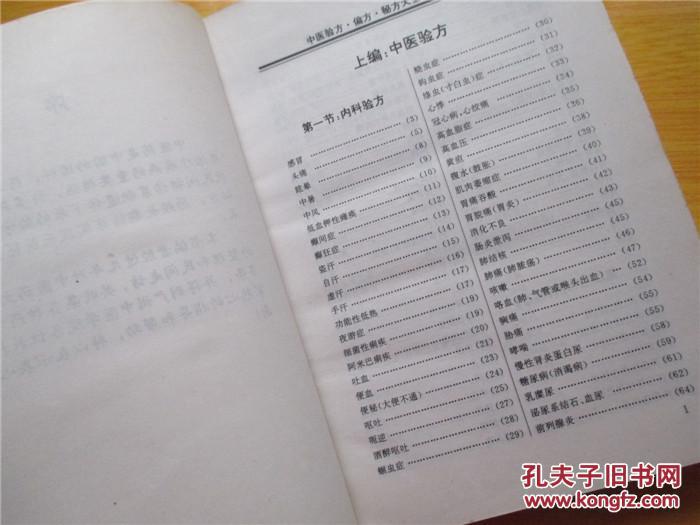 中医验方·偏方·秘方大
上编:中医验方
第一节:内科验方
感冒 (3)
头痛 (5)
眩晕 (8)
中暑 (9)
中风 (10)
低血钾性瘫痪 (11)
癫间症 (12)
癫狂症 (13)
盗汗 (14)
自汗 (15)
虚汗 (16)
手汗 (17)
功能性低热 (17)
夜游症 (19)
细菌性痢疾 (19)
阿米巴痢疾 (20)
吐血 (21)
便血 (23)
便秘(大便不通) (24)
呕吐 (25)
呃逆 (27)
酒醉呕吐 (28)
蛔虫症 (29)
蛲虫症 (30)
钩虫症 (31)
绦虫(寸白虫)症 (32)
心悸 (33)
冠心病,心绞痛 (34)
高血脂症 (35)
高血压 (36)
黄疸 (38)
腹水(鼓胀) (39)
肌肉萎缩症 (40)
胃痛吞酸 (41)
胃脘痛(胃炎) (42)
消化不良 (45)
肠炎泄泻 (45)
肺结核 (46)
肺痈(肺脓疡) (47)
咳嗽 (52)
咯血(肺、气管或喉头出血) (54)
胸痛 (55)
胁痛 (55)
哮喘 (58)
慢性肾炎蛋白尿 (59)
糖尿病(消渴病) (61)
乳糜尿 (61)
泌尿系结石、血尿 (62)
前列腺炎 (64)
1
孔夫子旧书网
www.kongfz.com